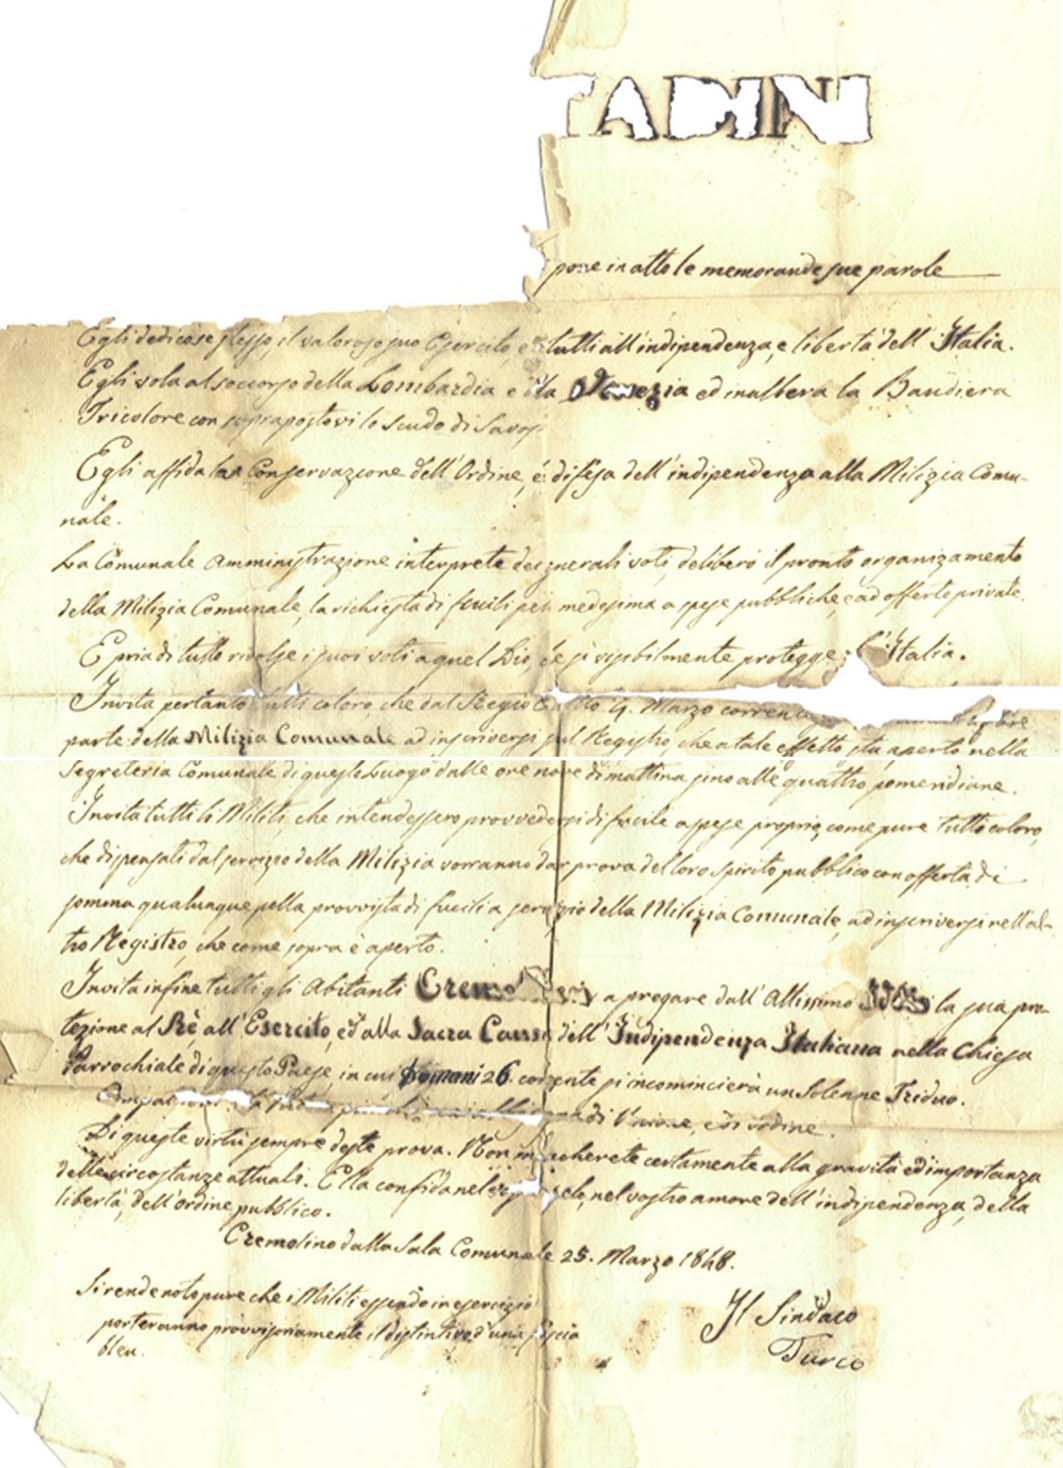 TADINI
pone in atto le memorande sue parole
Egli dedica se stesso, il valoroso suo Esercito, e tutti all'indipendenza, e libertà dell'Italia.
Egli vola al soccorso della Lombardia e della Venezia ed inalbera la Bandiera
Tricolore con soprapostovi lo Scudo di Savoj
Egli affida la Conservazione dell'Ordine, e difesa dell'indipendenza alla Milizia Comu-
nale.
La Comunale Amministrazione interprete dei generali voti, deliberò il pronto organizamento
della Milizia Comunale, la richiesta di fucili per medesima a spese pubbliche, e ad offerte private.
E pria di tutto rivolge i suoi voti a quel Dio, che sì visibilmente protegge l'Italia.
Invita pertanto tutti coloro, che dal Regio Editto 4. Marzo corrente
parte della Milizia Comunale ad inscriversi sul Registro, che a tale effetto sta aperto nella
Segreteria Comunale di questo Luogo dalle ore nove di mattina sino alle quattro pomeridiane.
Invita tutti li Militi, che intendessero provvedersi di fucile a spese proprie, come pure tutti coloro,
che dispensati dal servizio della Milizia vorranno dar prova del loro spirito pubblico con offerta di
somma qualunque pella provvista di fucili a servizio della Milizia Comunale, ad inscriversi nell'al-
tro Registro, che come sopra è aperto.
Invita infine tutti gli Abitanti Cremolinesi a pregare dall'Altissimo Iddio la sua pro-
tezione al Rè, all'Esercito, ed alla Sacra Causa dell'Indipendenza Italiana nella Chiesa
Parrochiale di questo Paese, in cui domani 26. corrente si incomincierà un Solenne Triduo.
di Unione, e di ordine.
Di queste virtù sempre deste prova. Non mancherete certamente alla gravità ed importanza
delle circostanze attuali. Ella confida nel zelo, nel vostro amore dell'indipendenza, della
libertà, dell'ordine pubblico.
Cremolino dalla Sala Comunale 25. Marzo 1848.
Si rende noto pure che i Militi essendo in esercizio
porteranno provvisoriamente il distintivo d'una fascia
bleu.
Il Sindaco
Turco